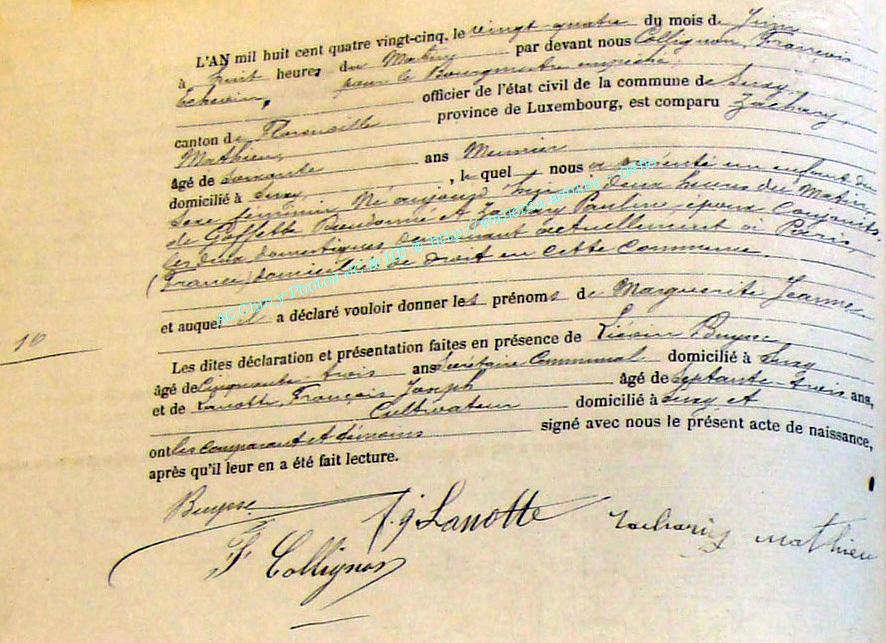 L'AN mil huit cent quatre vingt-cinq, le vingt-quatre du mois de Juin
à huit heures du Matin par devant nous Collignon, François
Echevin, pour le Bourgmestre empêché,
officier de l'état civil de la commune de Suxy,
canton de Florenville province de Luxembourg, est comparu Zachary,
Mathieu,
âgé de soixante ans Meunier
domicilié à Suxy, le quel nous a présenté un enfant du
sexe féminin Né aujourd'hui à deux heures du Matin,
de Goffette Dieudonné et Zachary Pauline, époux conjoints,
les deux domestiques demeurant actuellement à Paris,
(France) domiciliés de droit en cette commune,
et auquel il a déclaré vouloir donner les prénoms de Marguerite Jeanne
16
Les dites déclaration et présentation faites en présence de Buysse
âgé de Cinquante-trois ans Secrétaire Communal domicilié à Suxy
et de Lanotte, François Joseph âgé de Septante-trois ans,
Cultivateur domicilié à Suxy et
ont les comparant et témoins signé avec nous le présent acte de naissance,
après qu'il leur en a été fait lecture.
Buysse
f. j. Lanotte
Zachariy mathieu
F Collignon